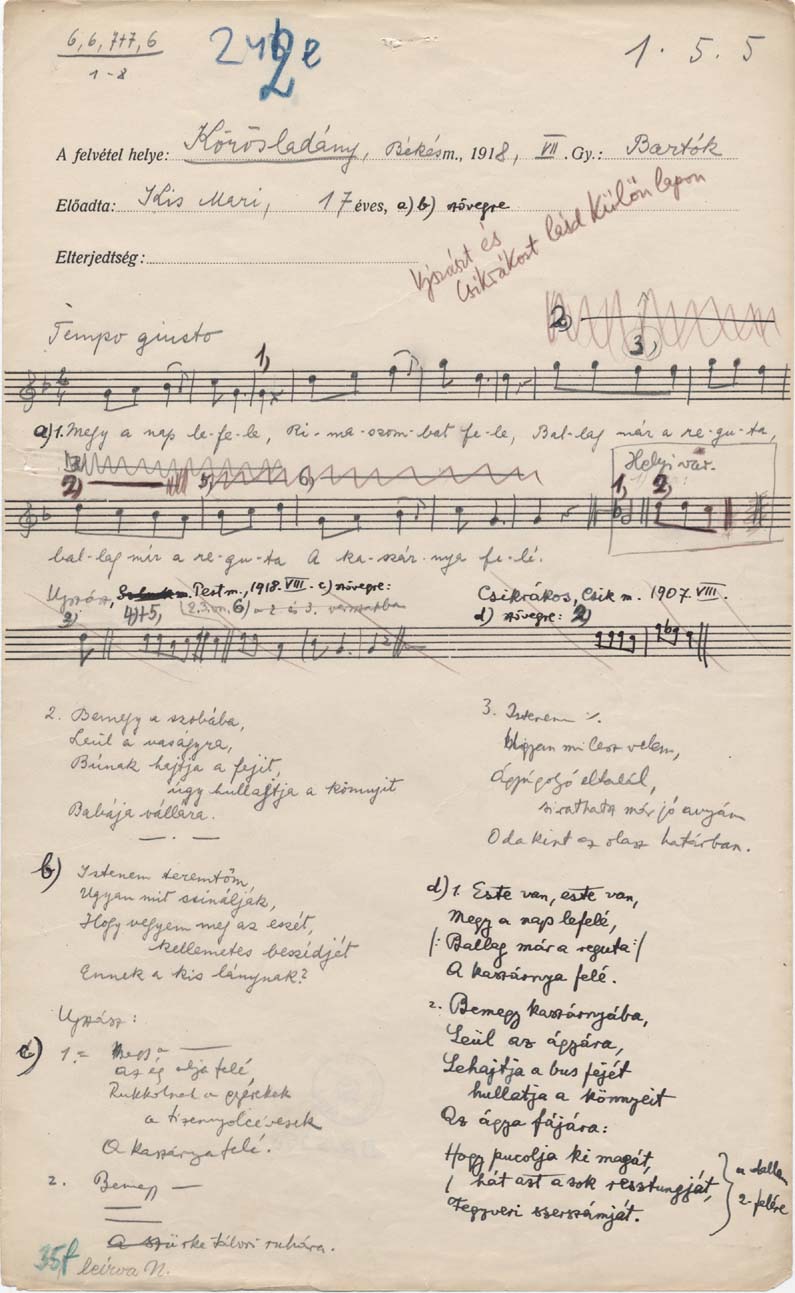 6, 6, 7+7, 6
1-8
1. 5. 5
A felvétel helye: Körösladány, Békésm., 1918, VII. Gy.: Bartók
Előadta: Kis Mari, 17 éves, a) b) szövegre
Elterjedtség:
Ujszászt és
Csikrákost lásd külön lapon
Tempo giusto
2)
3)
1,
a) 1. Megy a nap le-fe-le, Ri-ma-szom-bat fe-le, Bal-lag már a re-gu-ta,
Helyi var.
2) 5) 6)
1, 2,
bal-lag már a re-gu-ta A ka-szár-nya fe-lé.
Ujszász, Pest m., 1918. VIII. c) szövegre:
Csikrákos, Csik m. 1907. VIII.
4)+5, 6) a 2 és 3. versszakban
d) szövegre: 2)
2. Bemegy a szobába,
Leül a vaságyra,
Búnak hajtja a fejit,
úgy hullajtja a könnyit
Babája vállára.
3. Istenem ٪.
Ugyan mi lesz velem,
Ágyúgolyó eltalál,
sirathatsz már jó anyám
Oda kint az olasz határban.
b) Istenem teremtőm,
Ugyan mit csinálják,
Hogy vegyem meg az eszét,
kellemetes beszédjét
Ennek a kis lánynak?
Ujszász:
c) 1. = Megy a —
az ég alja felé,
Rukkolnak a gyerekek
a tizennyolcévesek
A kaszárnya felé.
2. Bemegy —
A szürke tábori ruhára.
d) 1. Este van, este van,
Megy a nap lefelé,
/: Ballag már a reguta :/
A kaszárnya felé.
2. Bemegy kaszárnyába,
Leül az ágyára,
Lehajtja a bus fejét
hullatja a könnyeit
Az ágya fájára:
Hogy pucolja ki magát,
hát azt a sok resztungját,
Fegyveri szerszámját.
a dallam
2. felére
35f
leírva N.